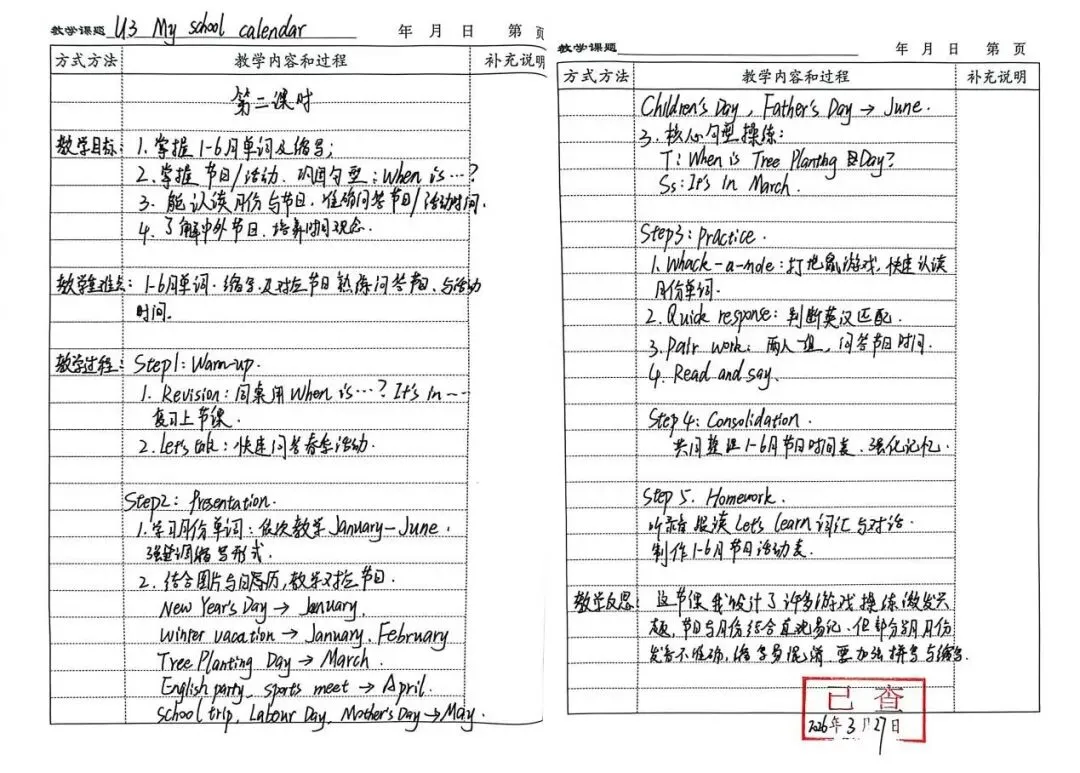 教学课题 U3 My school calendar 年 月 日 第 页
方式方法 教学内容和过程 补充说明
第二课时
教学目标: 1. 掌握1-6月单词及缩写;
2. 掌握节日/活动、巩固句型:When is…?
3. 能认读月份与节日,准确问答节日/活动时间.
4. 了解中外节日、培养时间观念.
教学重难点: 1-6月单词、缩写及对应节日熟练问答节日、与活动
时间。
教学过程: Step1: Warm-up.
1. Revision: 同桌用When is…? It's in ---
复习上节课.
2. Let's talk: 快速问答春季活动.
Step2: Presentation.
1. 学习月份单词:依次教学January-June.
强调缩写形式
2. 结合图片与日历,教学对应节日.
New Year's Day → January.
Winter vacation → January. February
Tree Planting Day → March.
English party, sports meet → April.
School trip, Labour Day, Mother's Day → May.
教学课题 年 月 日 第 页
方式方法 教学内容和过程 补充说明
Children's Day, Father's Day → June.
3. 核心句型操练:
T: When is Tree Planting Day?
Ss: It's in March.
Step3: Practice.
1. Whack-a-mole: 打地鼠游戏,快速认读
月份单词.
2. Quick response: 判断英汉匹配.
3. Pair work: 两人一组,问答节日时间.
4. Read and say.
Step 4: Consolidation.
共同整理1-6月节日时间表、强化记忆.
Step 5. Homework.
听音跟读Let's learn词汇与对话.
制作1-6月节日活动表.
教学反思: 这节课我设计了许多游戏操练激发兴
趣,节日与月份结合直观易记.但部分月份
发音不准确,缩写易混淆.要加强拼写与缩写.
已查
2026年3月27日